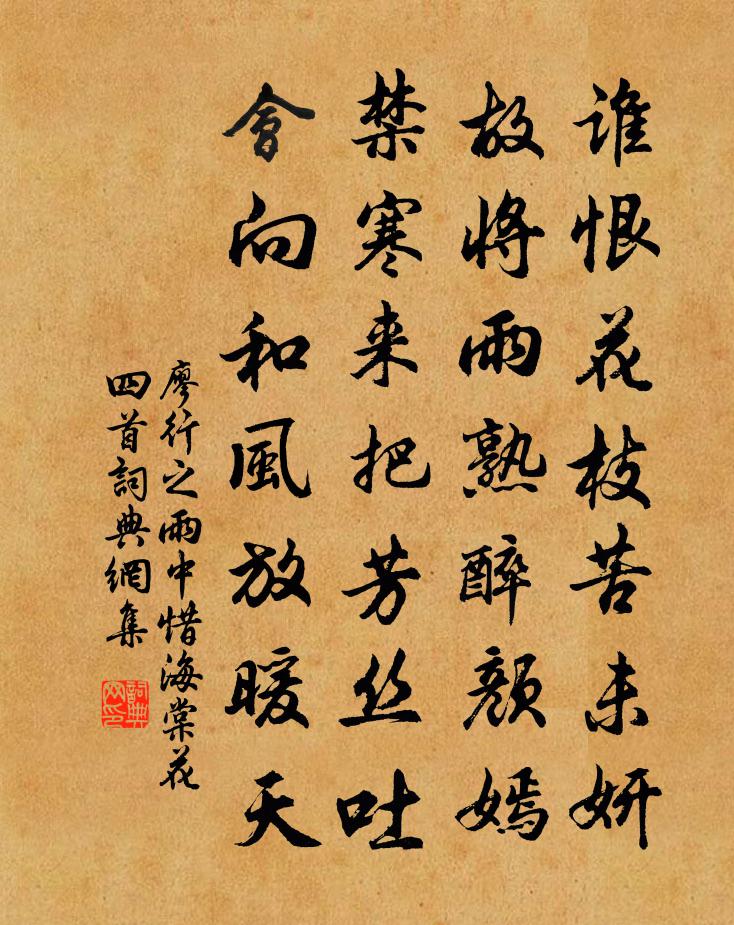 誰恨花枝苦未妍
故將雨熟醉顏嫣
禁寒来把芳丝吐
會向和風放暖天
廖行之雨中惜海棠花
四首詞典網集
詞典
网印